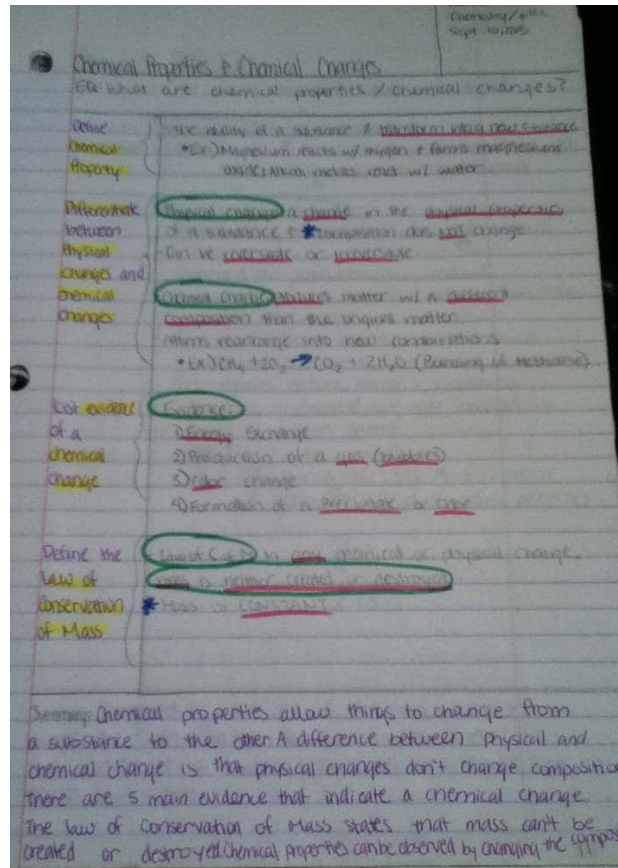 Chemistry/
Sept 10, 2013
Chemical Properties & Chemical Changes
EQ: What are chemical properties / chemical changes?
Define
Chemical
Property
The ability of a substance to transform into a new substance
*Ex) Magnesium reacts w/ oxygen & forms magnesium
oxide; Alkali metals react w/ water
Differentiate
between
Physical
changes and
chemical
changes
Physical change: a change in the physical properties
of a substance & * composition does not change
Can be reversible or irreversible
Chemical change: produces matter w/ a different
composition than the original matter
Atoms rearrange into new combinations
*Ex) CH4 + 2O2 → CO2 + 2H2O (Burning of Methane)
List evidence
of a
chemical
change
Evidence:
1) Energy Exchange
2) Production of a gas (bubbles)
3) Color change
4) Formation of a Precipitate or odor
Define the
Law of
Conservation
of Mass
Law of C of M: In any chemical or physical change,
mass is neither created or destroyed
* Mass is CONSTANT
Summary: Chemical properties allow things to change from
a substance to the other. A difference between physical and
chemical change is that physical changes don't change compositio
There are 5 main evidence that indicate a chemical change.
The law of Conservation of Mass states that mass can't be
created or destroyed. Chemical properties can be observed by changing the compos